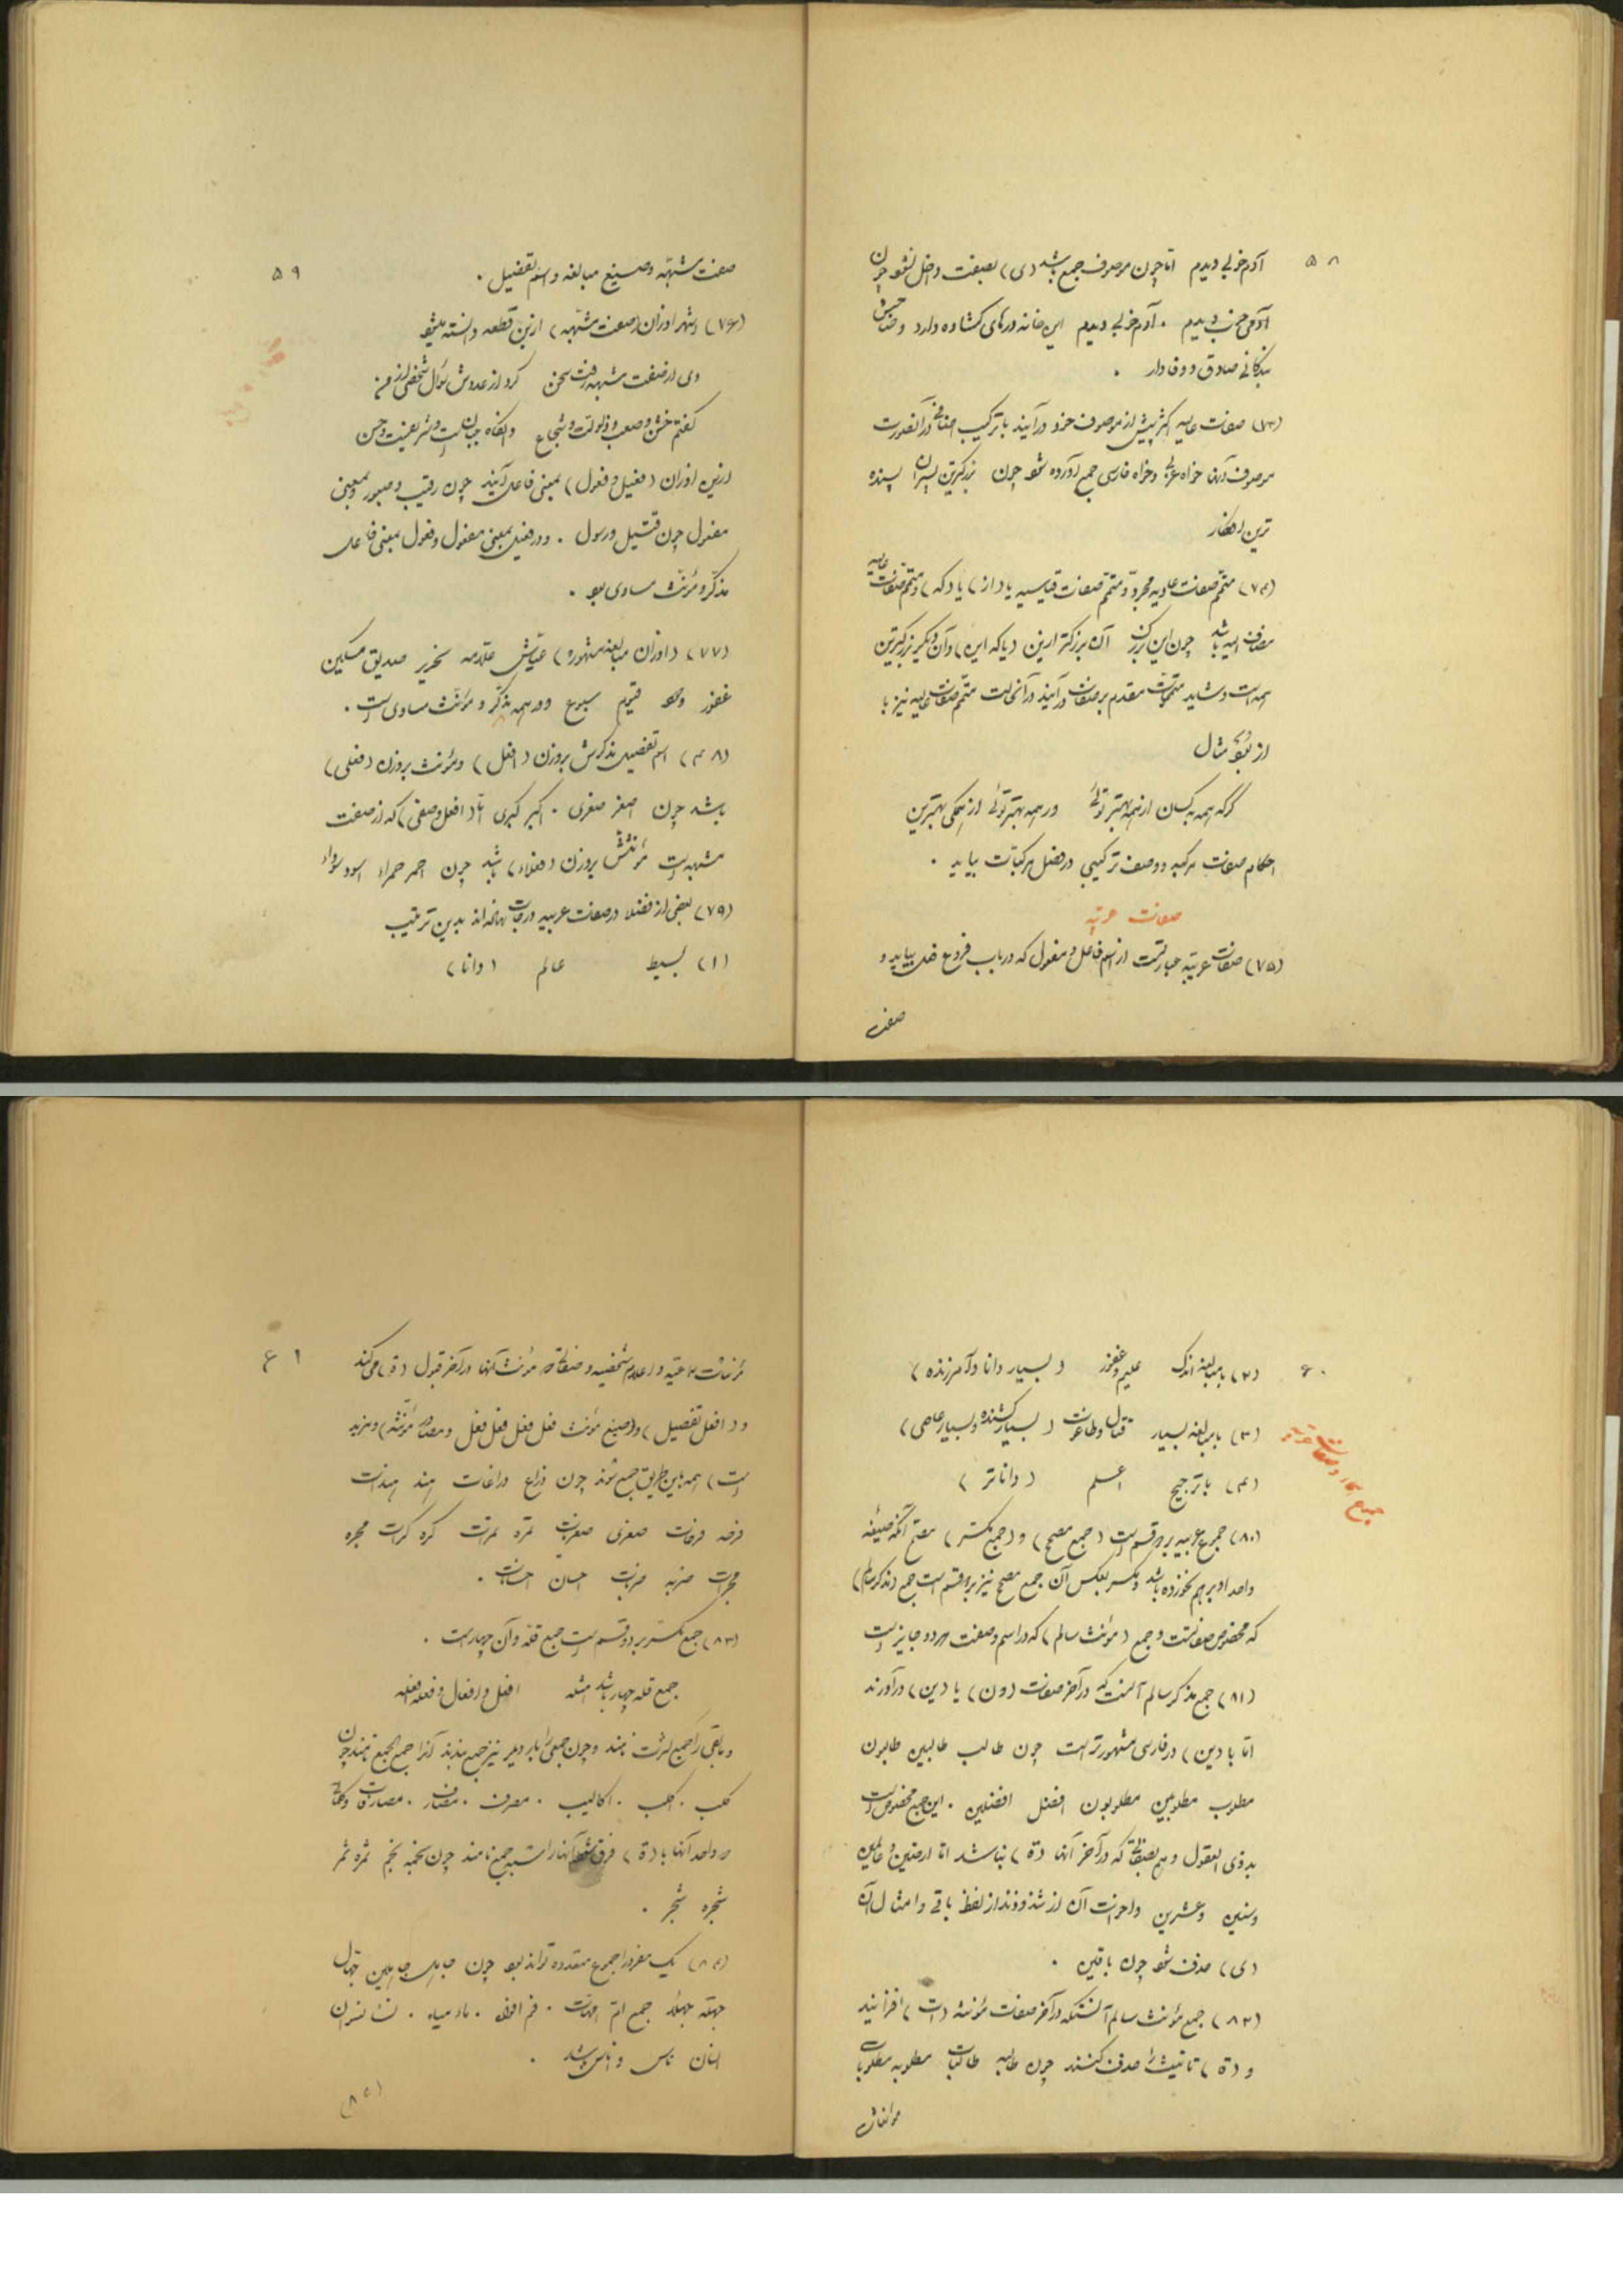 ۵۸
آدم خوبی دیدم اما چون موصوف جمع باشد (ی) بصفت داخل نشود چون
آدمی خوب دیدم . آدم خوبی دیدم این خانه درهای گشاده دارد و صاحبش
بندگانی صادق و وفادار .
(۷۳) صفات عالیه اکثر پیش از موصوف خود درآیند با ترکیب اضافی در آنصورت
موصوف آنها خواه عربی و خواه فارسی جمع آورده شود چون بزرگترین پسران پسندیده
ترین افکار
(۷۴) متمم صفات عادیه مجرد و متمم صفات قیاسیه با (از) یا (که) و متمم صفات عالیه
مضاف الیه باشد چون این بزرگ آن بزرگتر ازین (یا که این) و آن دیگر بزرگترین
همه است و شاید متممات مقدم بر صفات درآیند در آنحالت متمم صفات عالیه نیز با
از بود مثال
گرکه همه بکسان از همه بهتر توئی ور همه بهتر توئی از همگی بهترین
احکام صفات مرکبه و وصف ترکیبی در فصل مرکبات بیاید .
صفات عربیه
(۷۵) صفات عربیه عبارتست از اسم فاعل و مفعول که در باب فروع فعل بیاید و
صفت
۵۹
صفت مشبهه و صیغ مبالغه و اسم تفضیل .
(۷۶) اشهر اوزان (صفت مشبهه) ازین قطعه دانسته میشود
دی از صفت مشبهه رفت سخن کرد از عددش سؤال شخصی از من
گفتم خشن و صعب و ذلولست و شجاع وانگاه جبان است و شریفست و حسن
ازین اوزان (فعیل و فعول) بمعنی فاعل آیند چون رقیب و صبور و بمعنی
مفعول چون قتیل و رسول . و در فعیل بمعنی مفعول و فعول بمعنی فاعل
مذکر و مؤنث مساوی بود .
(۷۷) (اوزان مبالغه مشهوره) عیاش علامه نحریر صدیق مسکین
غفور ودود قیوم سبوح و در همه مذکر و مؤنث مساوی است .
(۷۸) اسم تفضیل مذکرش بروزن (افعل) و مؤنث بروزن (فعلی)
باشد چون اصغر صغری . اکبر کبری اما (افعل وصفی) که از صفت
مشبهه است مؤنثش بروزن (فعلاء) باشد چون احمر حمراء اسود سوداء
(۷۹) بعضی از فضلا در صفات عربیه درجات نهاده‌اند بدین ترتیب
(۱) بسیط عالم (دانا)
۶۰
(۲) با مبالغه اندک علیم و غفور (بسیار دانا و آمرزنده)
(۳) با مبالغه بسیار قتال و طاغوت (بسیار کشنده و بسیار عاصی)
(۴) با ترجیح اعلم (داناتر)
(۸۰) جموع عربیه بر دو قسم است (جمع مصحح) و (جمع مکسر) مصحح آنکه صیغه
واحد او برهم نخورده باشد و مکسر بعکس آن جمع مصحح نیز بر دو قسم است جمع (مذکر سالم)
که مخصوص صفاتست و جمع (مؤنث سالم) که در اسم و صفت هر دو جایز است
(۸۱) جمع مذکر سالم آنست که در آخر صفات (ون) یا (ین) درآورند
اما با (ین) در فارسی مشهورتر است چون طالب طالبین طالبون
مطلوب مطلوبین مطلوبون افضل افضلین . این جمع مخصوص است
بذوی العقول و هم بصفاتی که در آخر آنها (ة) نباشد اما ارضین و عالمین
و سنین و عشرین و اخوات آن از شذوذند از لفظ باقی و امثال آن
(ی) حذف شود چون باقین .
(۸۲) جمع مؤنث سالم آنستکه در آخر صفات مؤنثه (ات) افزایند
و (ة) تأنیث را حذف کنند چون طالبه طالبات مطلوبه مطلوبات
مؤنثات
۶۱
مؤنثات سماعیه و اعلام شخصیه و صفاتی که مؤنث آنها در آخر قبول (ة) می‌کند
و (افعل تفضیل) و (صیغ مؤنث فعل فعل فعل فعل و مصادر مؤنثه) و مزید
است) همه باین طریق جمع شوند چون ذراع ذراعات هند هندات
فرضه فرضات صغری صغریات تمرة تمرات کره کرات حجره
حجرات ضربه ضربات احسان احسانات .
(۸۳) جمع مکسر بر دو قسم است جمع قله و آن چهار است .
جمع قله چهار باشد امثله افعل و افعال و فعله افعله
و مابقی را جمع کثرت نامند و چون جمعی را بار دیگر نیز جمع بندند آنرا جمع الجمع نامند چون
کلب . اکلب . اکالیب . مصرف . مصارف . مصارفات
و واحد آنها با (ة) فرق شود آنها را شبه جمع نامند چون نجمه نجم ثمره ثمر
شجره شجر .
(۸۴) یک مفرد را جموع متعدده تواند بود چون جاهل جاهلین جهال
جهله جهلاء جمع ام امهات . فم افواه . ماء میاه . نساء نسوان
انسان ناس و اناس باشد .
(۸۵)